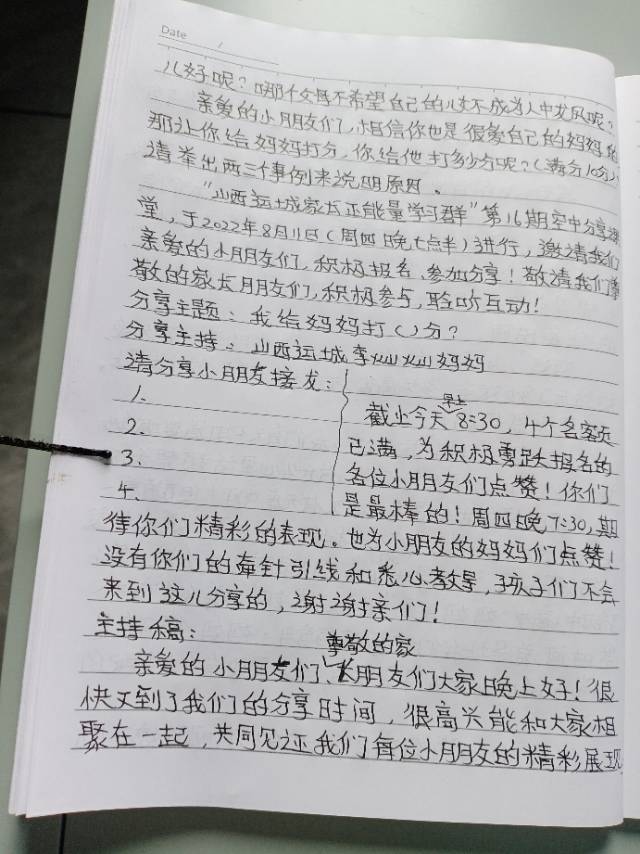 Date
儿好呢？哪个父母不希望自己的儿女不成为人中龙凤呢？
亲爱的小朋友们，相信你也是很爱自己的妈妈的
那让你给妈妈打分，你给他打多少分呢？（满分10分）
请举出两三件事例来说明原因。
“山西运城家长正能量学习群”第16期空中分享课
堂，于2022年8月11日（周四晚七点半）进行，邀请我们
亲爱的小朋友们，积极报名、参加分享！敬请我们尊
敬的家长朋友们，积极参与，聆听互动！
分享主题：我给妈妈打（）分？
分享主持：山西运城李灿灿妈妈
请分享小朋友接龙：
1.
2.
3.
4.
早上
截止今天8:30，4个名额
已满，为积极踴跃报名的
各位小朋友们点赞！你们
是最棒的！周四晚7:30，期
待你们精彩的表现。也为小朋友的妈妈们点赞！
没有你们的牵针引线和悉心教导，孩子们不会
来到这儿分享的，谢谢亲们！
主持稿：
尊敬的家
亲爱的小朋友们、长朋友们大家晚上好！很
快又到了我们的分享时间，很高兴能和大家相
聚在一起，共同见证我们每位小朋友的精彩展现